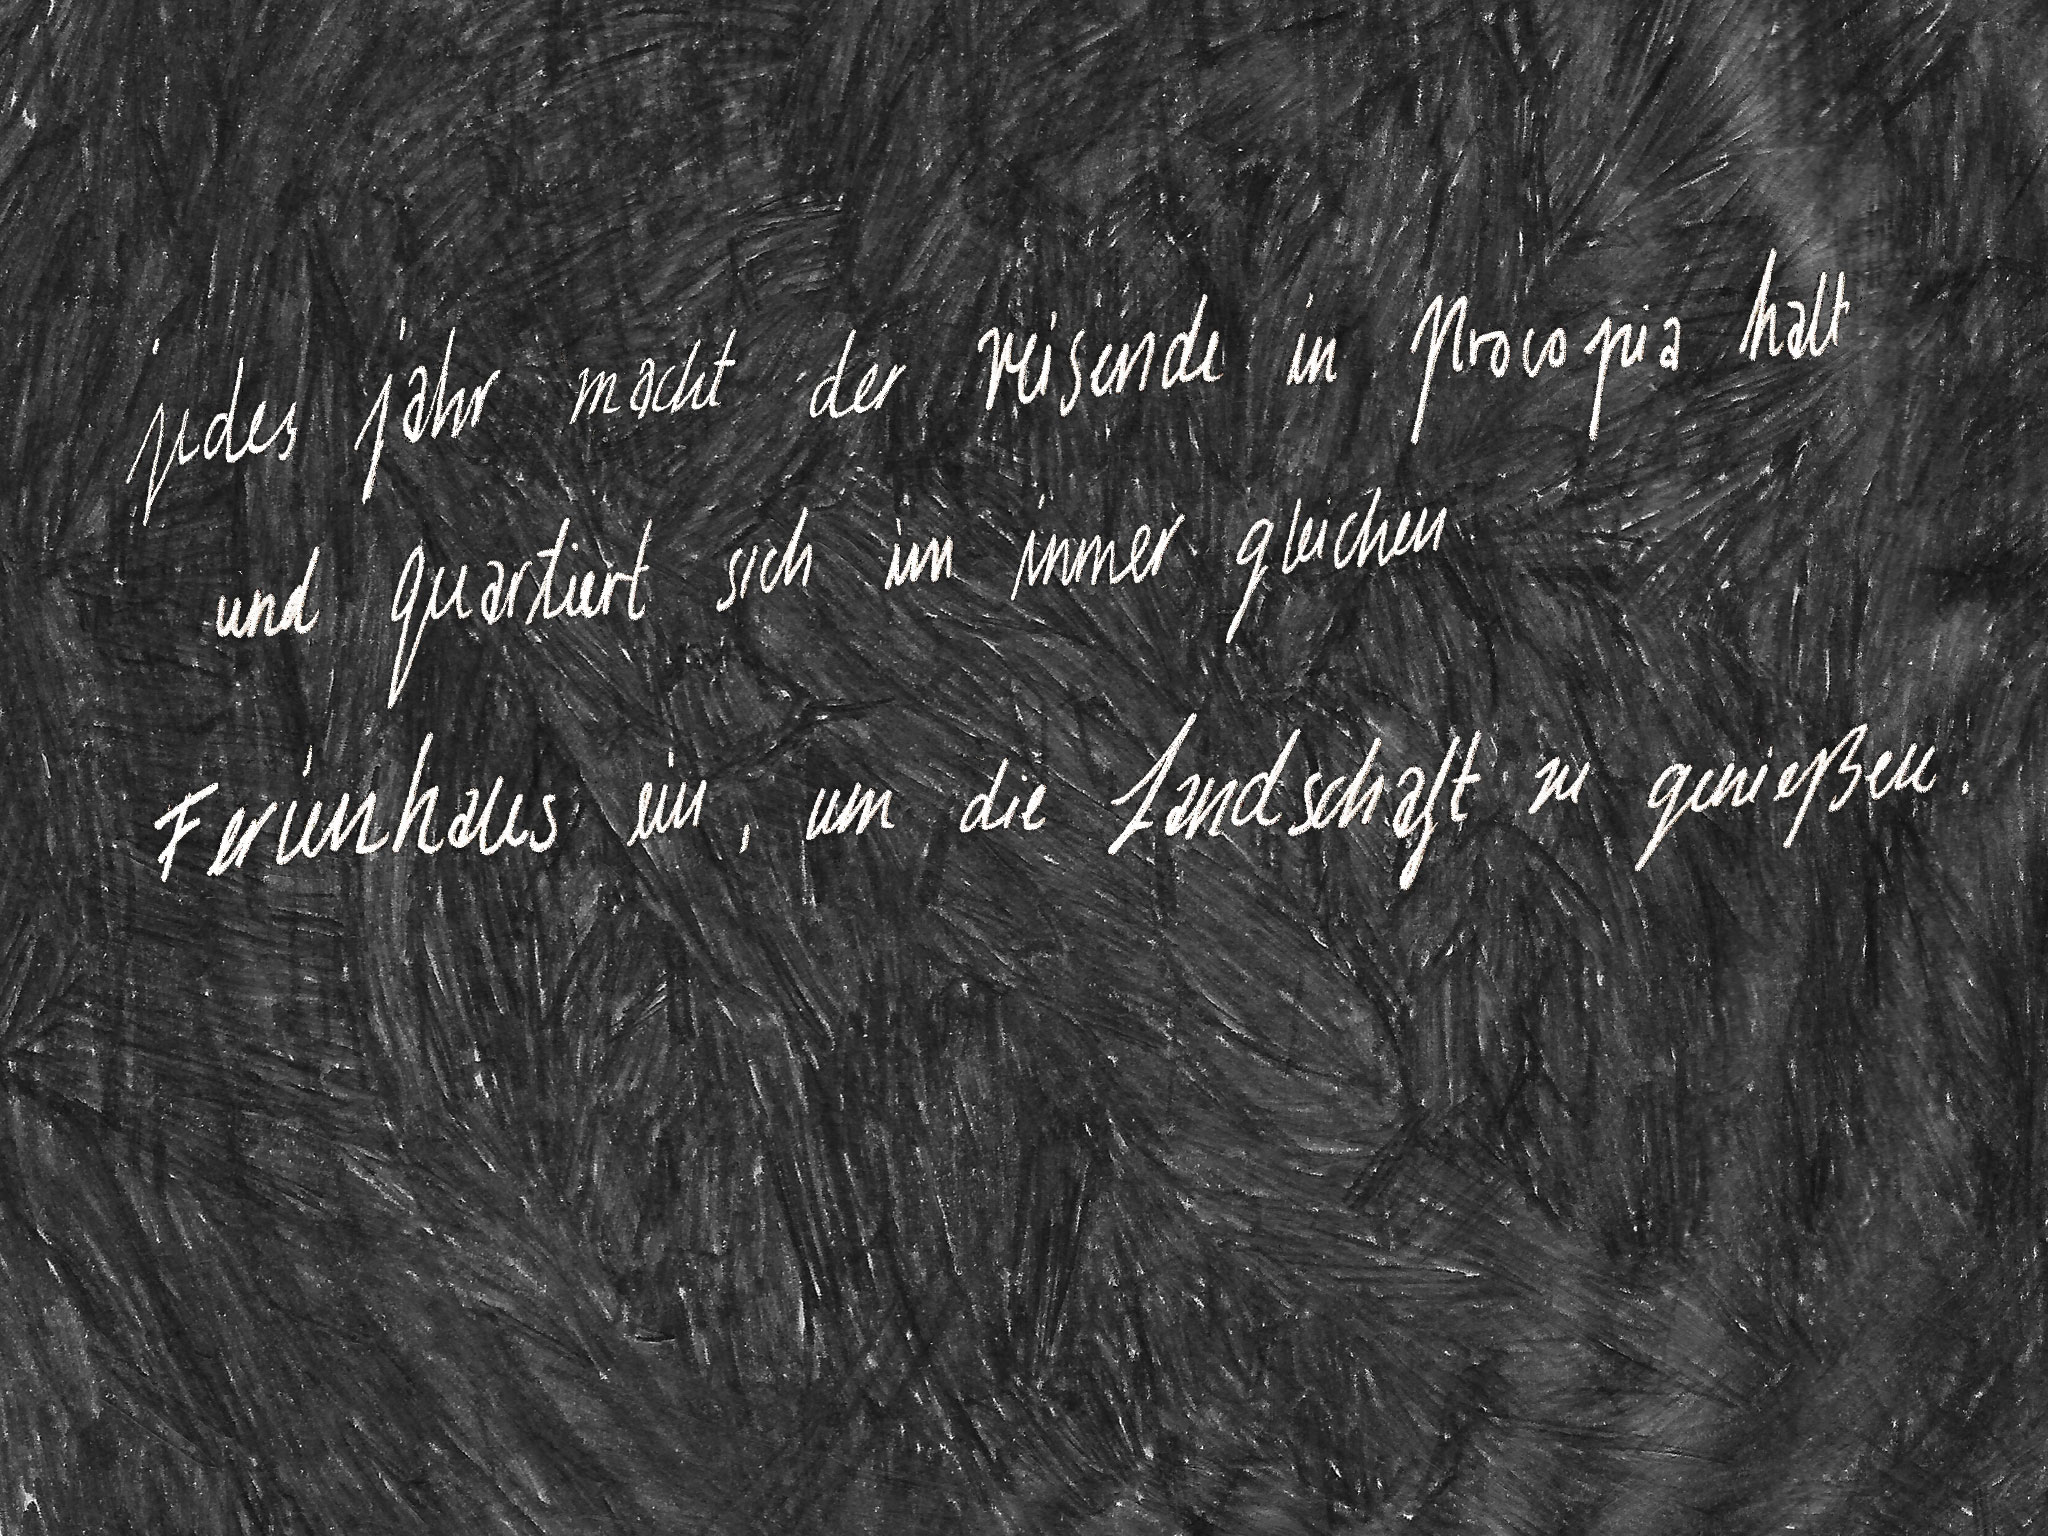 jedes jahr macht der reisende in Procopia halt
und quartiert sich im immer gleichen
Ferienhaus ein, um die Landschaft zu genießen.